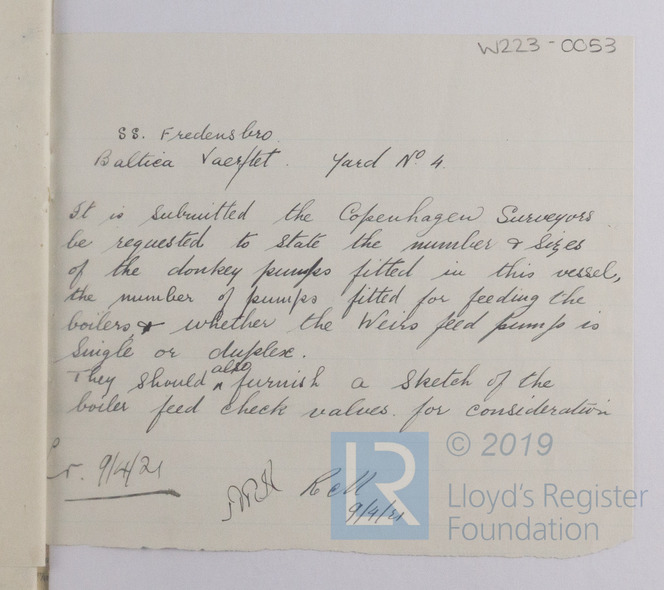 W223-0053
SS. Fredensbro.
Baltica Vaerftet. Yard No 4.
It is submitted the Copenhagen Surveyors
be requested to state the number & sizes
of the donkey pumps fitted in this vessel,
the number of pumps fitted for feeding the
boilers, & whether the Weirs feed pump is
single or duplex.
They should also furnish a sketch of the
boiler feed check valves. for consideration
9/4/21
9/4/21
LR
© 2019
Lloyd's Register
Foundation